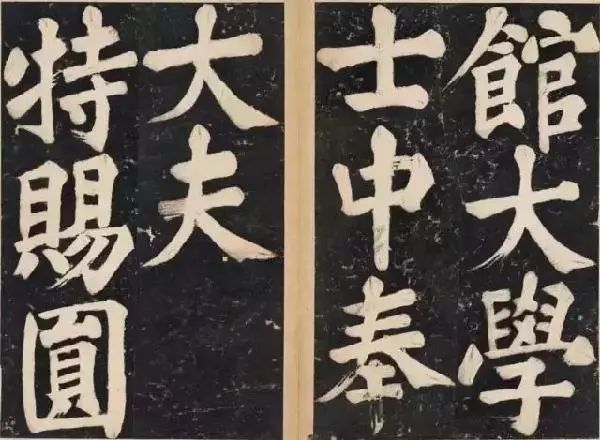 館大學
士中奉
大夫
特賜圓